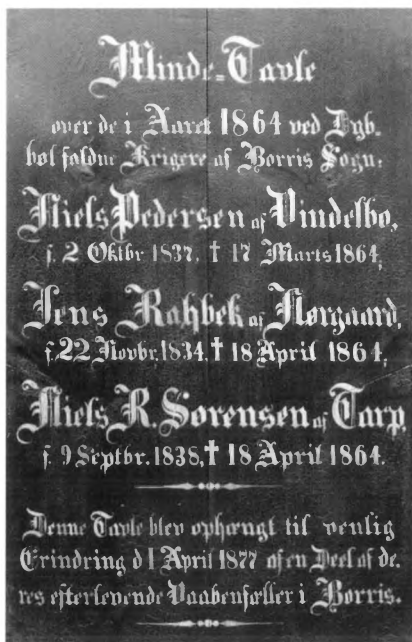 Minde=Tavle
over de i Aaret 1864 ved Dyb-
bøl faldne Krigere af Borris Sogn:
Niels Pedersen af Vindelbo,
f. 2 Oktbr 1837, † 17 Marts 1864,
Jens Rahbek af Nørgaard,
f. 22 Novbr, 1834, † 18 April 1864,
Niels R. Sørensen af Tarp,
f. 9 Septbr. 1838, † 18 April 1864.
Denne Tavle blev ophængt til venlig
Erindring d 1 April 1877 af en Deel af de-
res efterlevende Vaabenfæller i Borris.